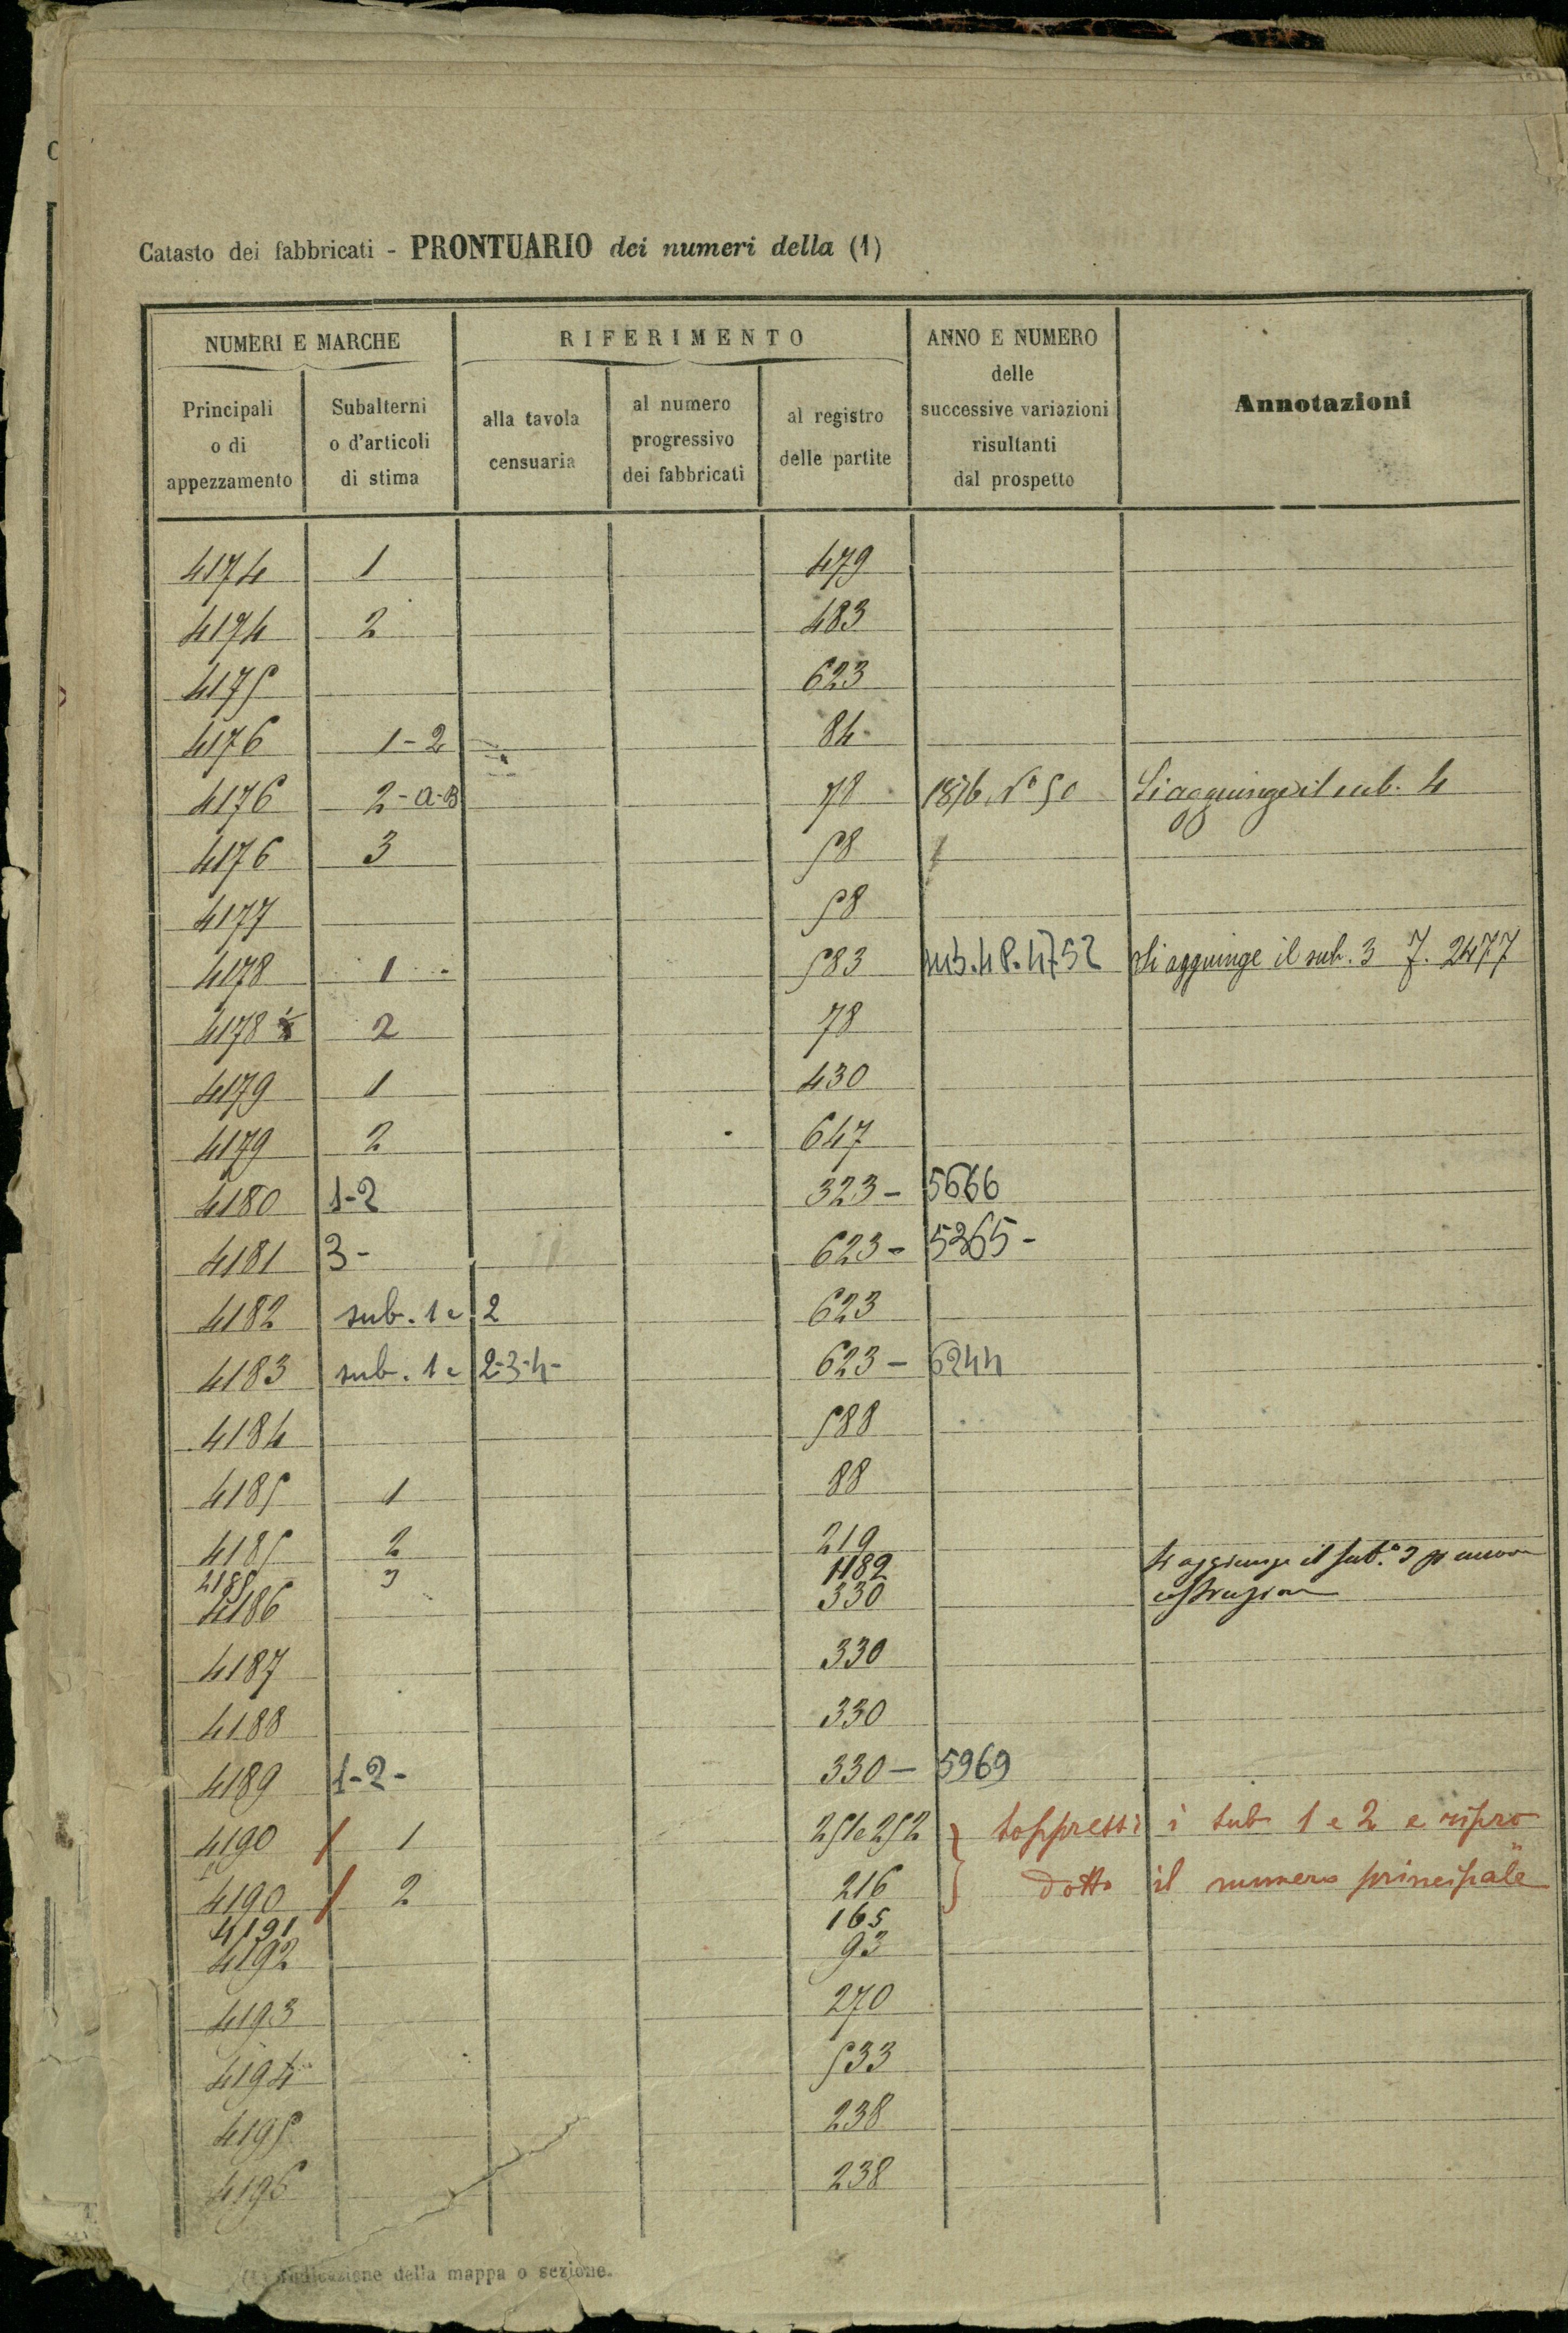 Catasto dei fabbricati - PRONTUARIO dei numeri della (1)
NUMERI E MARCHE RIFERIMENTO ANNO E NUMERO delle successive variazioni risultanti dal prospetto Annotazioni
Principali o di appezzamento Subalterni o d'articoli di stima alla tavola censuaria al numero progressivo dei fabbricati al registro delle partite
4174 1 479
4174 2 483
4175 623
4176 1-2 84
4176 2-a-B 78 1876 N° 50 Si aggiunge il sub. 4
4176 3 58
4177 58
4178 1 583 Si aggiunge il sub. 3 7. 2477
4178 2 78
4179 1 430
4179 2 647
4180 1-2 323- 5666
4181 3- 623- 5365-
4182 sub. 1 e 2 623
4183 sub. 1 e 2-3-4- 623- 6244
4184 588
4185 1 88
4185 2 219
3 1182 Si aggiunge il sub.° 3 p nuova
4186 330 costruzione
4187 330
4188 330
4189 1-2- 330- 5969
4190 / 1 251e252 } soppressi i sub 1 e 2 e ripro
4190 / 2 216 } dotto il numero principale
4191 165
4192 93
4193 270
4194 533
4195 238
4196 238
(1) Indicazione della mappa o sezione.